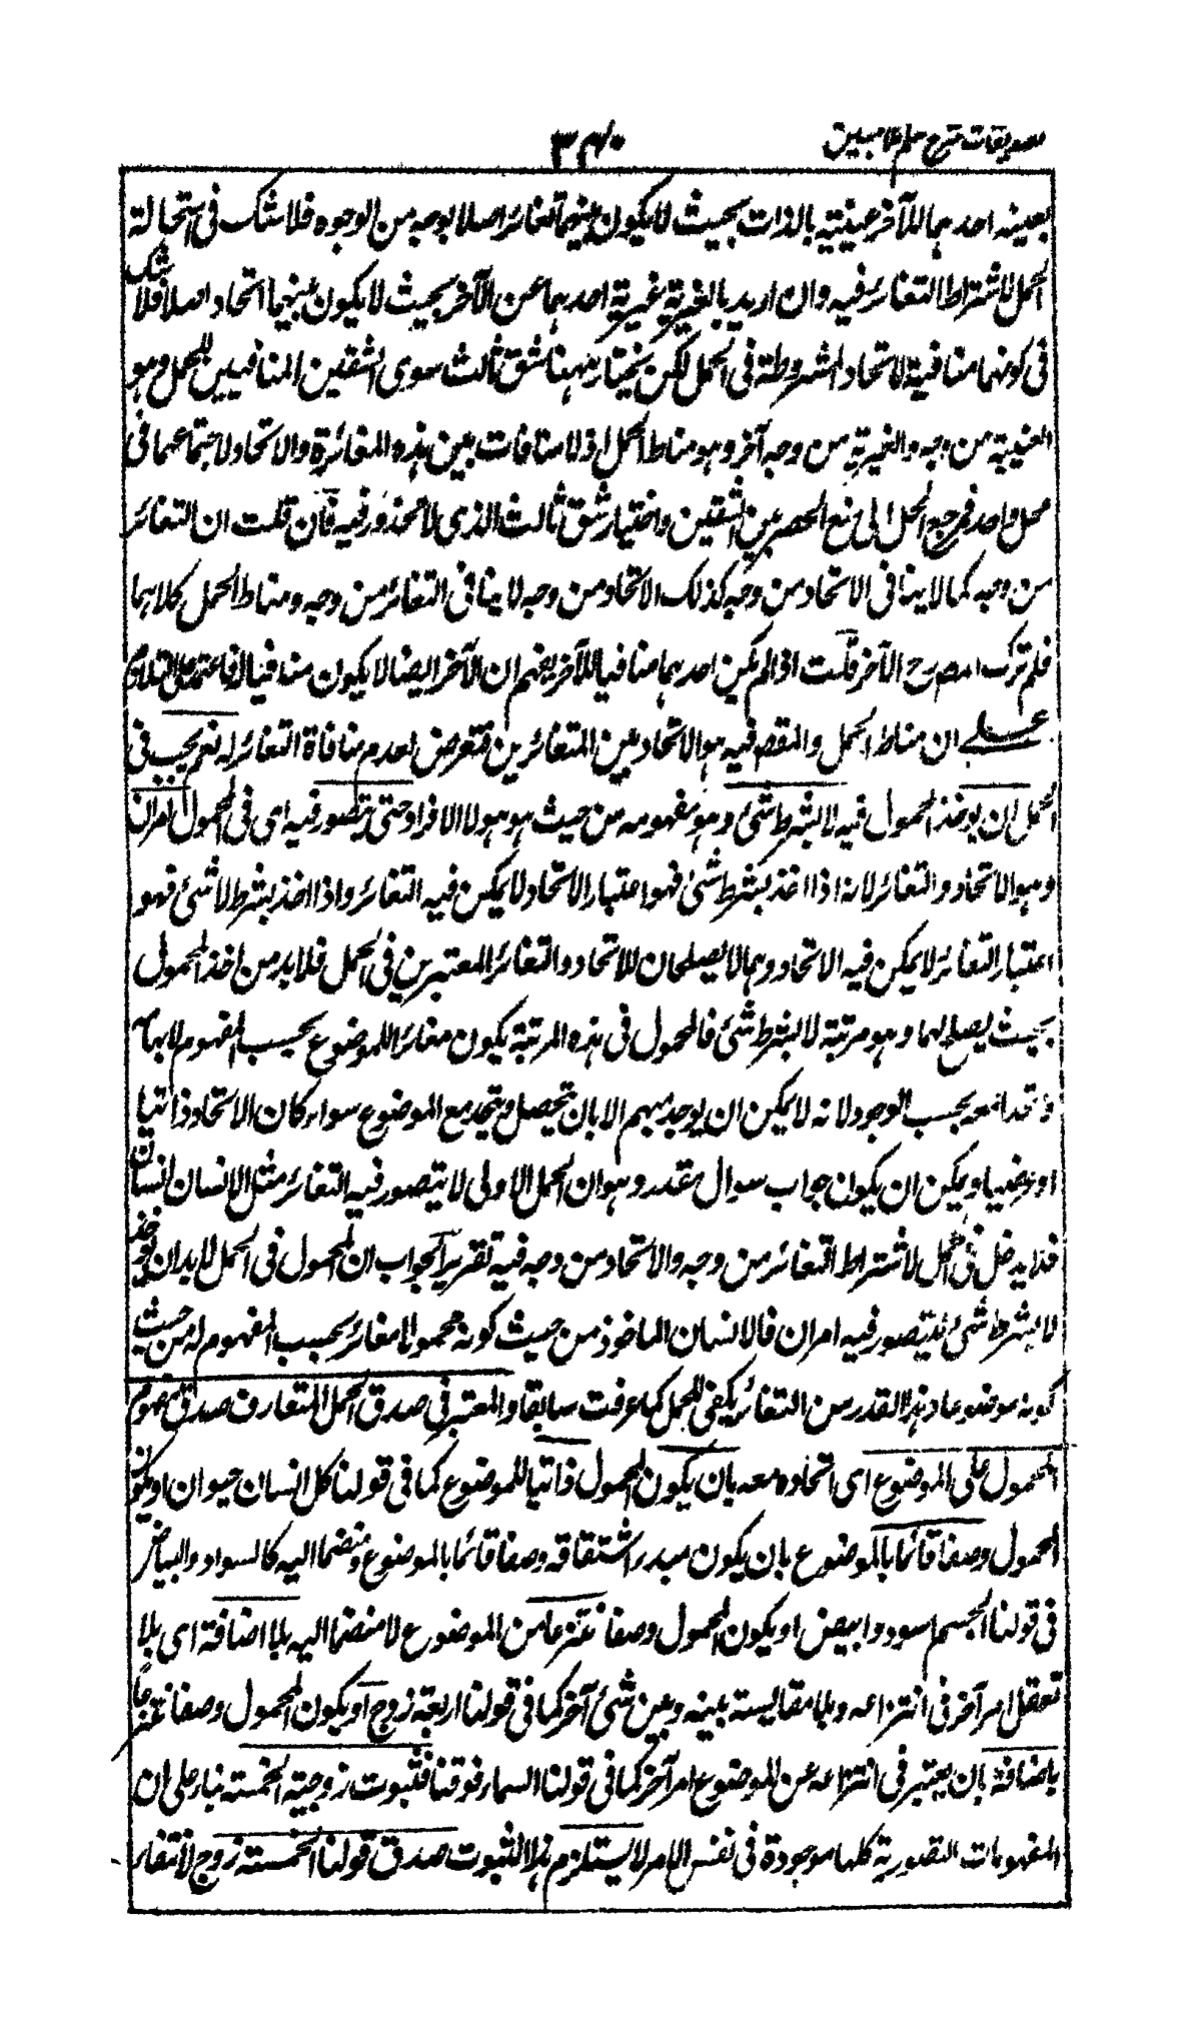 تصدیقات شرح سلم ملا مبین ٣٤٠
بعینہ احدہما للآخر عینیتہ بالذات بحیث لا یکون بینہما تغائر اصلا بوجہ من الوجوہ فلا شک فی استحالۃ
الحمل لاشتراط التغائر فیہ وان ارید بالغیریۃ غیریۃ احدہما عن الآخر بحیث لا یکون بینہما اتحاد اصلا فلا شک
فی کونہا منافیۃ لاتحاد المشروطۃ فی الحمل لکن یختار ہہنا شق ثالث سوی الشقین المنافیین للحمل وہو
العینیۃ من وجہ والغیریۃ من وجہ آخر وہو مناط الحمل اذ لا منافات بین ہذہ المغائرۃ والاتحاد لاجتماعہما فی
محل واحد فمرجع الحل الی منع الحصر بین الشقین واختیار شق ثالث الذی لا محذور فیہ فان قلت ان التغائر
من وجہ کما لا ینافی الاتحاد من وجہ کذلک الاتحاد من وجہ لا ینافی التغائر من وجہ ومناط الحمل کلاہما
فلم ترک المصرح الآخر قلت اذا لم یکن احدہما منافیا للآخر یفہم ان الآخر ایضا لا یکون منافیا لہ فاعتمد علی التلازم
علی ان مناط الحمل والمقصود فیہ ہو الاتحاد بین المتغائرین فتعرض لعدم منافاۃ التغائر لہ نعم یجب فی
الحمل ان یوخذ المحمول فیہ لا بشرط شیٔ وہو مفہومہ من حیث ہو ہو لا الافراد حتی یتصور فیہ ای فی المحمول امران
وہو الاتحاد والتغائر لانہ اذا اخذ بشرط شیٔ فہو اعتبار الاتحاد لا یمکن فیہ التغائر واذا اخذ بشرط لا شیٔ فہو
اعتبار التغائر لا یمکن فیہ الاتحاد وہما لا یصلحان للاتحاد والتغائر المعتبرین فی الحمل فلا بد من اخذ المحمول
بحیث یصلح لہما وہو مرتبۃ لا بشرط شیٔ فالمحمول فی ہذہ المرتبۃ یکون مغائرا للموضوع بحسب المفہوم لابہامہ
ومتحدا معہ بحسب الوجود لانہ لا یمکن ان یوجد مبہم الا بان یتحصل ویتحد مع الموضوع سواء کان الاتحاد ذاتیا
او عرضیا ویمکن ان یکون جواب سوال مقدر وہو ان الحمل الاولی لا یتصور فیہ التغائر مثل الانسان انسان
فلا یدخل فی الحمل لاشتراط التغائر من وجہ والاتحاد من وجہ فیہ تقریر الجواب ان المحمول فی الحمل لا بد ان یوخذ
لا بشرط شیٔ لیتصور فیہ امران فالانسان الماخوذ من حیث کونہ محمولا مغائر بحسب المفہوم لہ من حیث
کونہ موضوعا وہذا القدر من التغائر یکفی للحمل کما عرفت سابقا والمعتبر فی صدق الحمل المتعارف صدق مفہوم
المحمول علی الموضوع ای اتحادہ معہ بان یکون المحمول ذاتیا للموضوع کما فی قولنا کل انسان حیوان او یکون
المحمول وصفا قائما بالموضوع بان یکون مبدء اشتقاقہ وصفا قائما بالموضوع ومنضما الیہ کالسواد والبیاض
فی قولنا الجسم اسود وابیض او یکون المحمول وصفا منتزعا من الموضوع لا منضما الیہ بلا اضافۃ ای بلا
تعقل امر آخر فی انتزاعہ وبلا مقایستہ بینہ وبین شیٔ آخر کما فی قولنا اربعۃ زوج او یکون المحمول وصفا منتزعا
باضافۃ بان یعتبر فی انتزاعہ عن الموضوع امر آخر کما فی قولنا السماء فوقنا فثبوت زوجیۃ الخمسۃ بناء علی ان
المفہومات التصوریۃ کلہا موجودۃ فی نفس الامر لا یستلزم ہذا الثبوت صدق قولنا الخمسۃ زوج لانتفاء